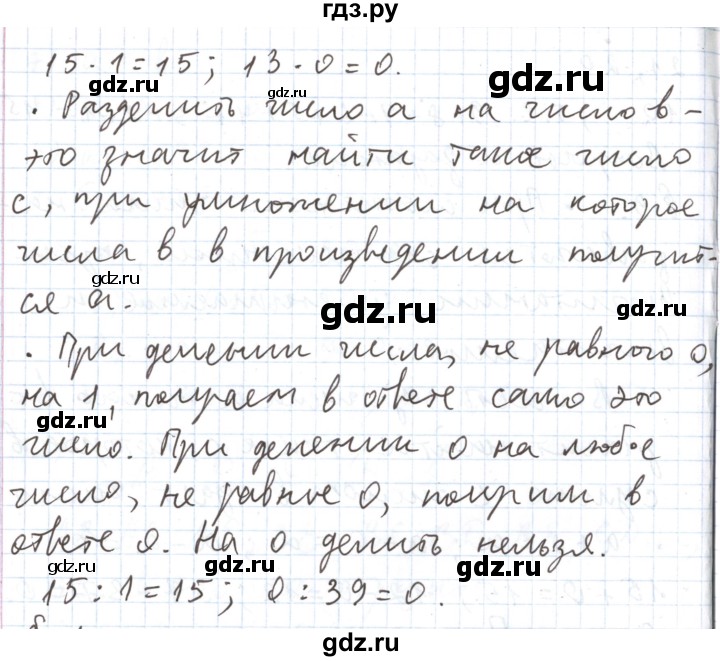 гдз.ру
15 · 1 = 15; 13 · 0 = 0.
gdz.ru gdz.ru
gdz.ru
. Разделить число a на число в -
это значит найти такое число
с, при умножении на которое
gdz.ru gdz.ru
числа в в произведении получит-
ся a.
gdz.ru gdz.ru gdz.ru
. При делении числа, не равного 0,
на 1, получаем в ответе само это
gdz.ru gdz.ru
число. При делении 0 на любое
число, не равное 0, получим в
gdz.ru gdz.ru
ответе 0. На 0 делить нельзя.
gdz.ru gdz.ru
15 : 1 = 15; 0 : 39 = 0.
gdz.ru